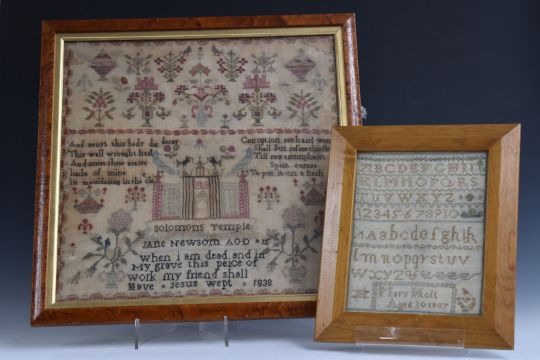 And must this body die
This well wrought frame decay
And must these active
limbs of mine
lie mouldering in the clay
Corruption earth and worms
Shall but refine this flesh
Till my triumphant
Spirit comes
To put it on a fresh
Solomons Temple
Jane Newsom Aged
When I am dead and in
My grave this peice of
work my friend shall
Have Jesus wept 1838
K L M N O P Q R S
T U V W X Y Z
1 2 3 4 5 6 7 8 9 10
a b c d e f g h i k
l m n o p q r s t u v
w x y z
Mary Holt
Aged 10 1807